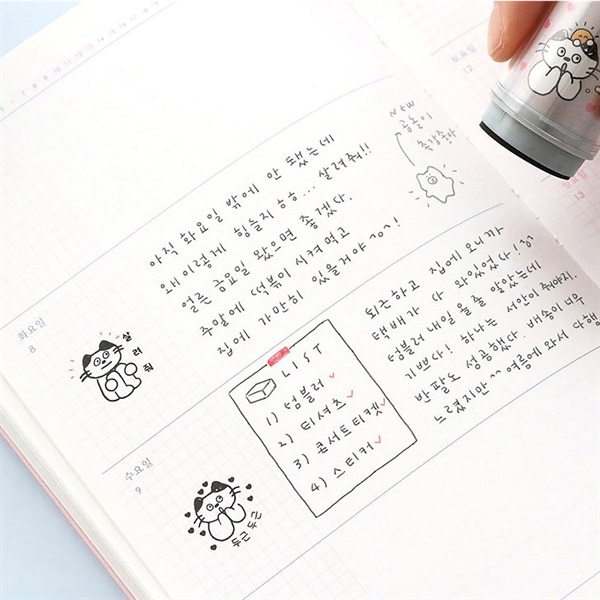 화요일
8
살
려
줘
아직 화요일 밖에 안 됐는데
왜 이렇게 힘들지 ㅎㅎ... 살려줘!!
얼른 금요일 왔으면 좋겠다.
주말에 떡볶이 시켜 먹고
집에 가만히 있을거야 ~o~!
New
곰돌이
촉감좋아
수요일
9
두근두근
LIST
1) 텀블러 ✓
2) 티셔츠 ✓
3) 콘서트티켓 ✓
4) 스티커 ✓
퇴근하고 집에 오니까
택배가 다 와있었다!
텀블러 내일 올줄 알았는데
기쁘다! 하나는 서안이 줘야지.
반팔도 성공했다. 배송이 너무
느렸지만 ~~ 여름에 와서 다행
토요일
12
13